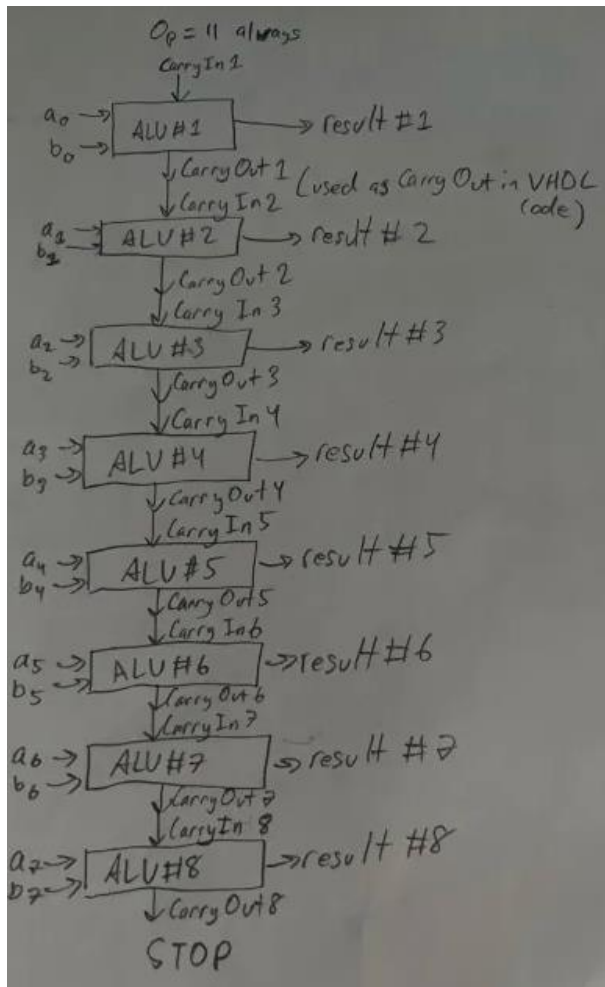 Op = 11 always
Carry In 1
a0
b0
ALU #1
result #1
Carry Out 1
Carry In 2 (used as Carry Out in VHDL
code)
a1
b1
ALU #2
result # 2
Carry Out 2
Carry In 3
a2
b2
ALU #3
result #3
Carry Out 3
Carry In 4
a3
b3
ALU #4
result #4
Carry Out 4
Carry In 5
a4
b4
ALU #5
result #5
Carry Out 5
Carry In 6
a5
b5
ALU #6
result #6
Carry Out 6
Carry In 7
a6
b6
ALU #7
result #7
Carry Out 7
Carry In 8
a7
b7
ALU #8
result #8
Carry Out 8
STOP